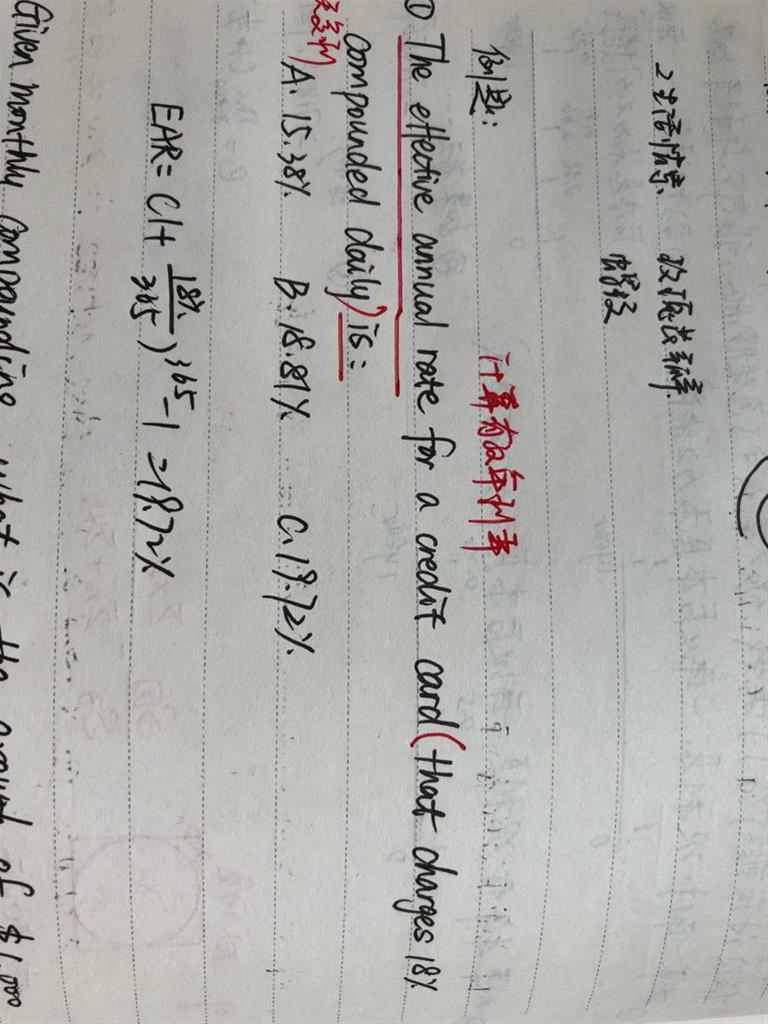 2 生活情景
例题：
计算有效年利率
① The effective annual rate for a credit card (that charges 18%
compounded daily) is:
A. 15.38% B. 18.81% C. 19.72%
EAR = (1+ 18%/365)^365 -1 = 19.72%
Given monthly compounding, what is the amount of $1,000